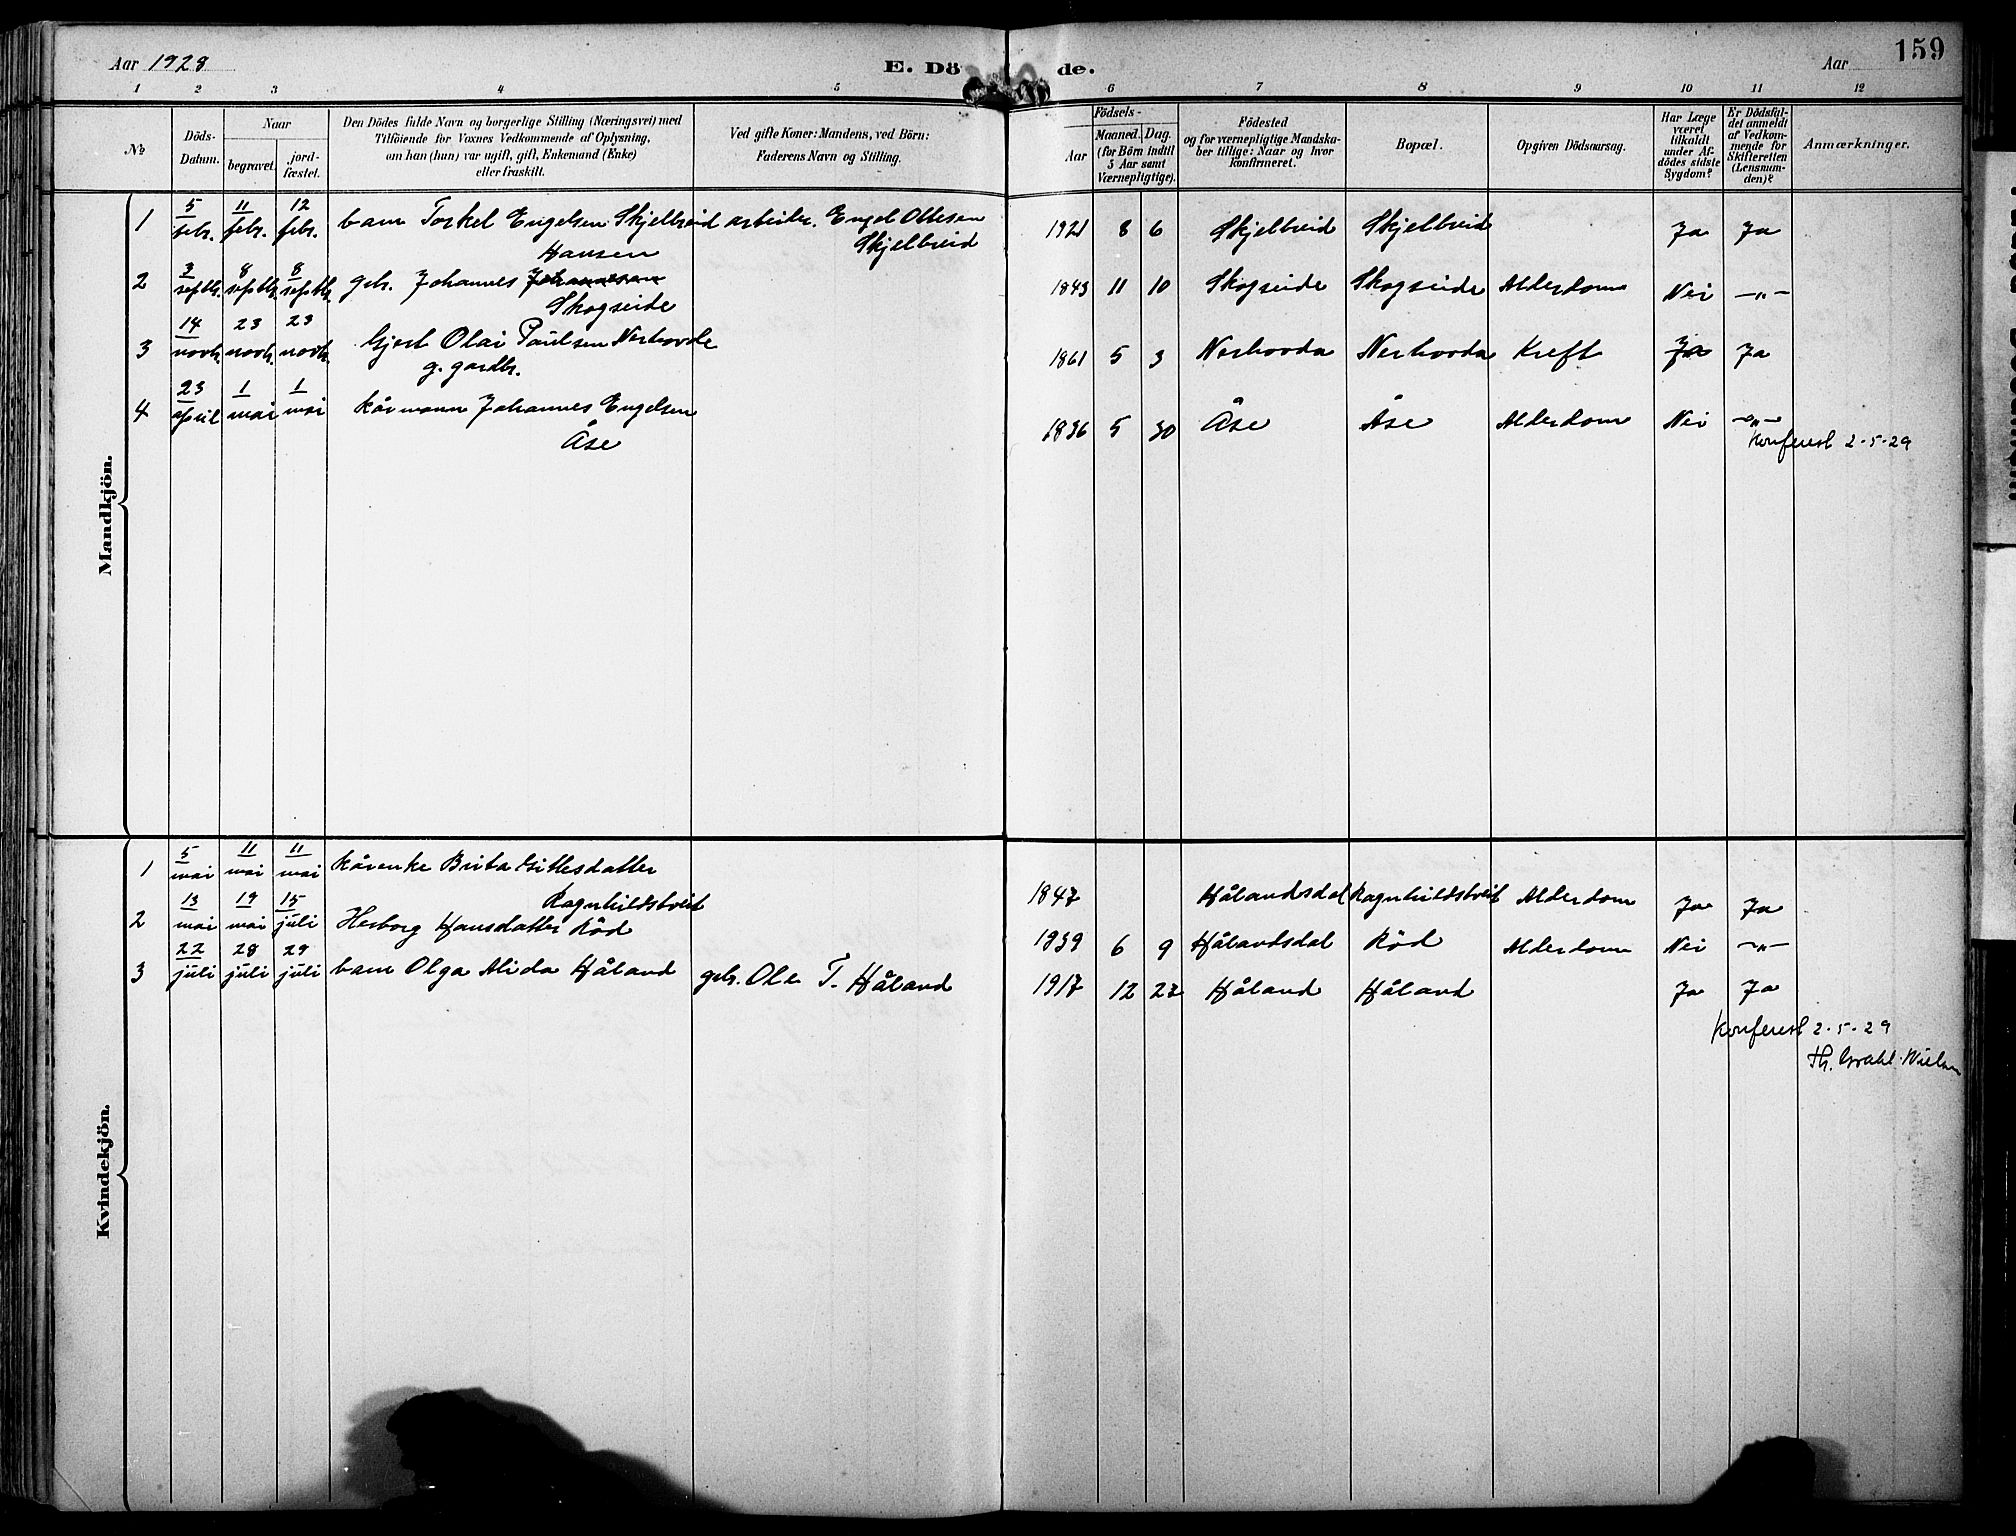 Aar 1928
E. Dö de.
Aar
159
1 2 3 4 5 6 7 8 9 10 11 12
№
Döds-
Datum.
Naar
begravet.
jord-
fæstet.
Den Dödes fulde Navn og borgerlige Stilling (Næringsvei) med
Tilföiende for Voxnes Vedkommende af Oplysning,
om han (hun) var ugift, gift, Enkemand (Enke)
eller fraskilt.
Ved gifte Koner: Mandens, ved Börn:
Faderens Navn og Stilling.
Födsels-
Aar
Maaned. Dag.
(for Börn indtil
5 Aar samt
Værnepligtige).
Födested
og for værnepligtige Mandska-
ber tillige: Naar og hvor
konfirmeret.
Bopæl.
Opgiven Dödsaarsag.
Har Læge
været
tilkaldt
under Af-
dödes sidste
Sygdom?
Er Dödsfal-
det anmeldt
af Vedkom-
mende for
Skifteretten
(Lensman-
den)?
Anmærkninger.
Mandkjön.
1 5 febr. 11 febr. 12 febr. barn Torkel Engelsen Skjelbreid arbeider. Engel Ottesen 1921 8 6 Skjelbreid Skjelbreid Ja Ja
Skjelbreid
Hansen
2 3 septbr. 8 septbr. 8 septbr. gbr. Johannes Johannesen 1843 11 10 Skogseide Skogseide Alderdom Nei -„-
Skogseide
3 14 novbr. 23 novbr. 23 novbr. Gjert Olai Paulsen Nerhovde 1861 5 3 Nerhovda Nerhovda Kreft Ja Ja
g. gardbr.
4 23 april 1 mai 1 mai kårmann Johannes Engelsen 1836 5 30 Åse Åse Alderdom Nei -„-
Åse
Konferert 2-5-29
Kvindekjön.
1 5 mai 11 mai 11 mai kårenke Brita Gittlesdatter
Ragnhildstveit 1847 Hålandsdal Ragnhildstveit Alderdom Ja Ja
2 13 mai 19 mai 15 juli Herborg Hansdatter Röd 1839 6 9 Hålandsdal Röd Alderdom Nei -„-
3 22 juli 28 juli 29 juli barn Olga Alida Håland gbr. Ole T. Håland 1917 12 27 Håland Håland Ja Ja
Konferert 2-5-29
Th. Grahl-Nielsen